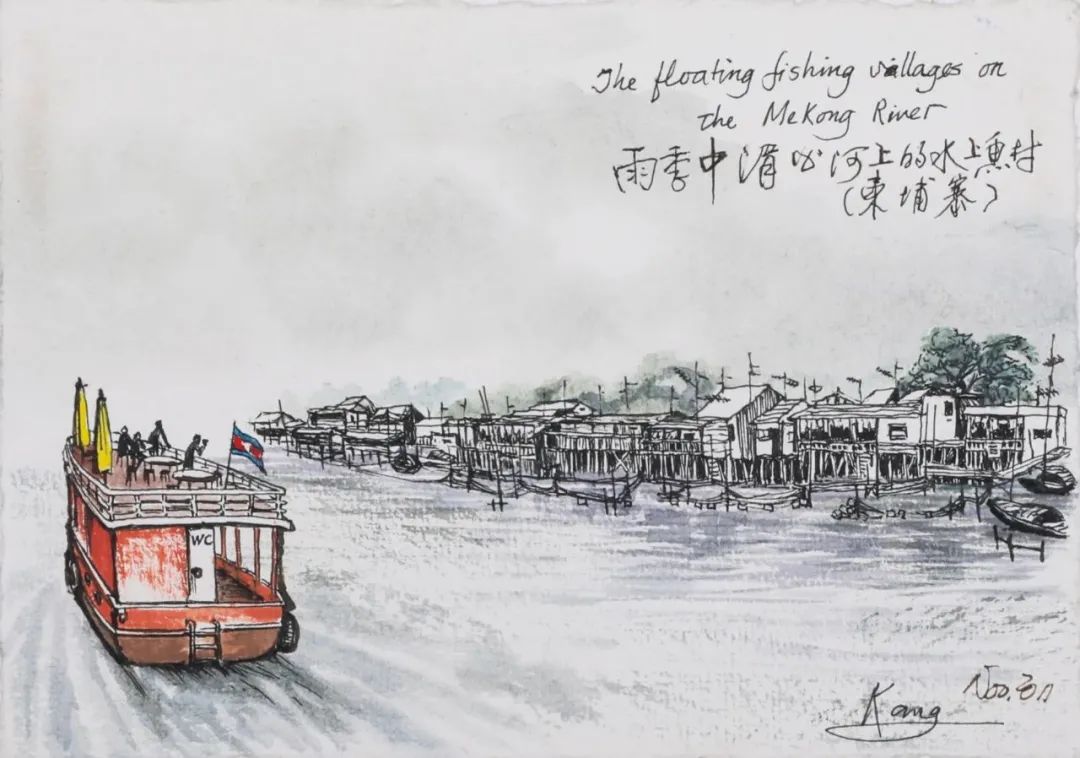 The floating fishing villages on
the Mekong River
雨季中湄公河上的水上魚村
（柬埔寨）
WC
Kang